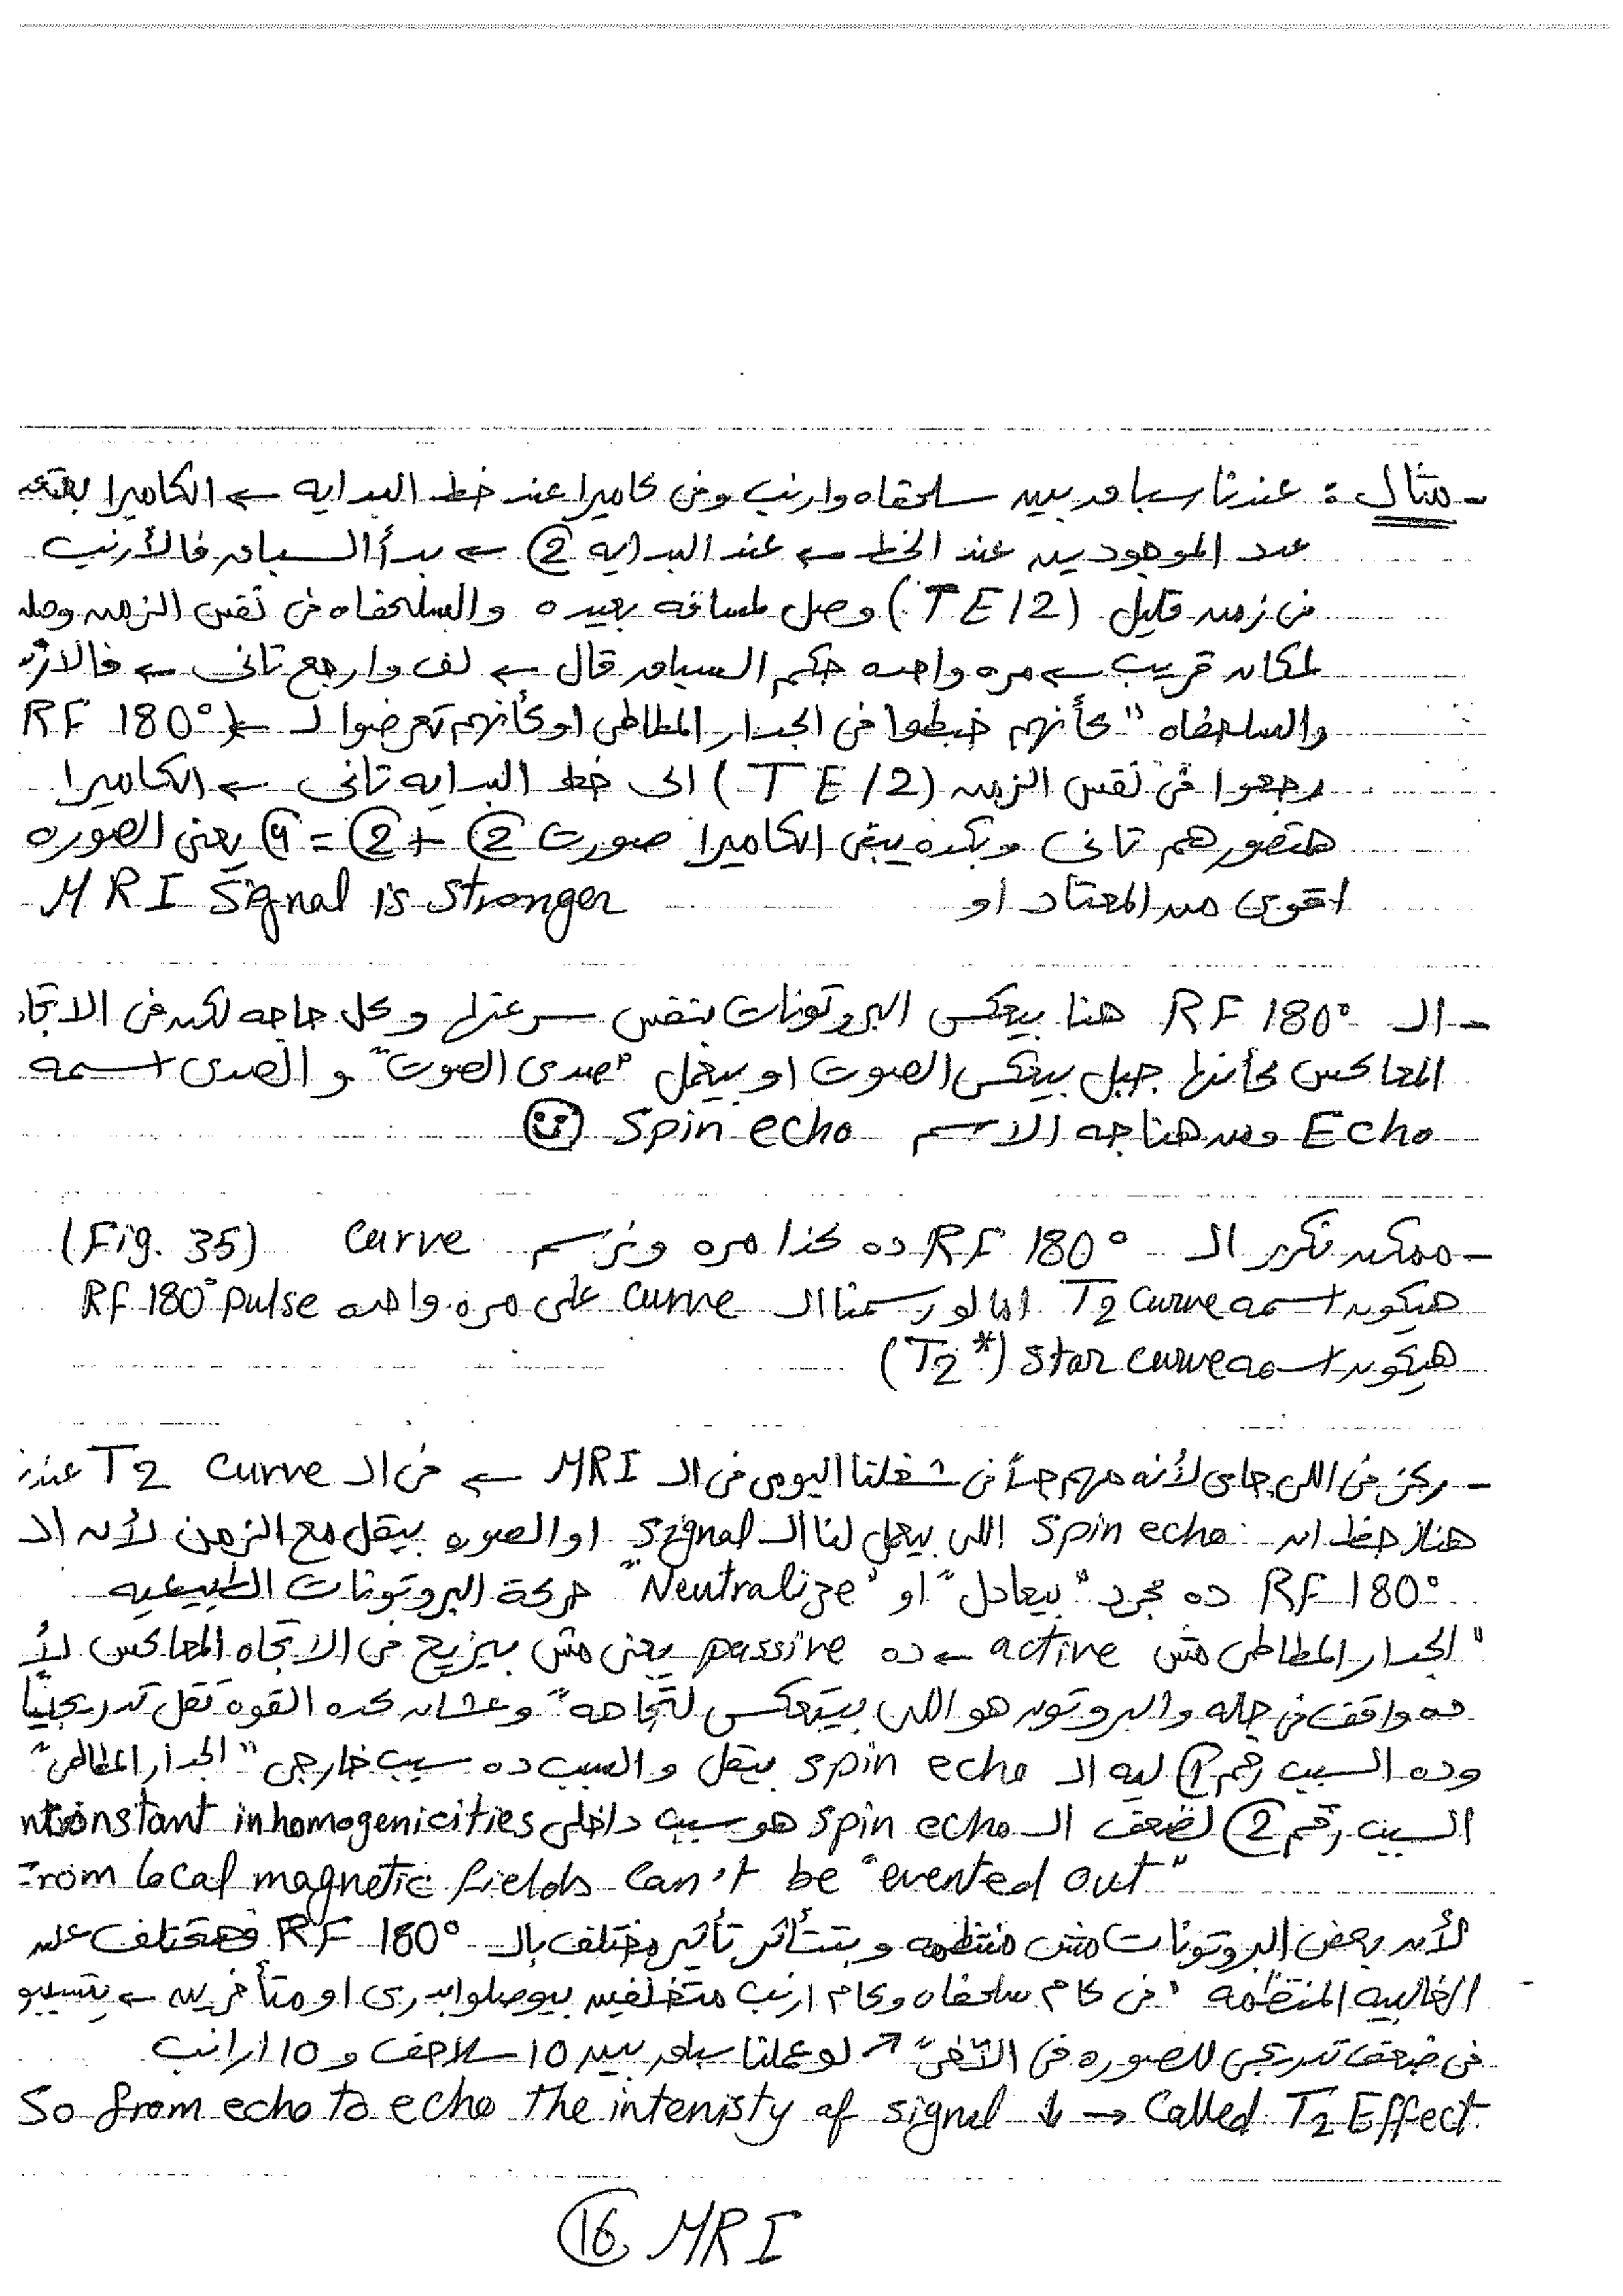 - مثال : عندنا سباق بين سلحفاه وارنب وفى كاميرا عند خط البدايه ← الكاميرا بتعد
عدد الموجودين عند الخط ← عند البدايه 2 ← بدأ السباق فالأرنب
فى زمن قليل (TE/2) وصل لمسافه بعيده والسلحفاه فى نفس الزمن وصله
لمكان قريب ← مره واحده حكم السباق قال ← لف وارجع تانى ← فالارنب
والسلحفاه " كأنهم خبطوا فى الجدار المطاطى او كأنهم تعرضوا لـ ← (RF 180°
رجعوا فى نفس الزمن (TE/2) الى خط البدايه تانى ← الكاميرا
هتصورهم تانى وبكده يبقى الكاميرا صورت 2 + 2 = 4 يعنى الصوره
اقوى من المعتاد او MRI Signal is stronger
- الـ RF 180° هنا بيعكس البروتونات بنفس سرعتها وكل حاجه لكن فى الاتجا
المعاكس كأنها جبل بيعكس الصوت او بيعمل "صدى الصوت" و الصدى اسمه
Echo ومن هنا جه الاسم Spin echo ☺
- ممكن نكرر الـ RF 180° ده كذا مره ونرسم Curve (Fig. 35)
هيكون اسمه T2 Curve اما لو رسمنا الـ curve على مره واحده Rf 180° pulse
هيكون اسمه Star curve (T2*)
- ركز فى اللى جاى لأنه مهم جداً فى شغلنا اليومى فى الـ MRI ← فى الـ T2 Curve عندنا
هنلاحظ ان Spin echo اللى بيعمل لنا الـ Signal او الصوره بيقل مع الزمن لأن الـ
RF 180° ده مجرد "بيعادل" او "Neutralize" حركة البروتونات الطبيعيه
"الجدار المطاطى مش active ← ده passive يعنى مش بيزيح فى الاتجاه المعاكس لأ
ده واقف فى حاله والبروتون هو اللى بيتعكس لتجاهه" وعشان كده القوه تقل تدريجياً
وده السبب رقم 1 ليه الـ spin echo بيقل والسبب ده سبب خارجى "الجدار المطاطى"
السبب رقم 2 لضعف الـ spin echo هو سبب داخلى constant inhomogenicities
From local magnetic fields Can't be "evented out"
لأن بعض البروتونات مش منتظمه وبتتأثر تأثير مختلف بالـ RF 180° فهتختلف عن
الغالبيه المنتظمه " فى كام سلحفاه وكام ارنب متخلفين بيوصلوا بدرى او متأخرين ← بيتسببو
فى ضعف تدريجى للصوره فى الآخر" ↗ لو عملنا سباق بين 10 سلاحف و 10 ارانب
So from echo to echo the intenisty of signal ↓ → Called T2 Effect.
16 MRI